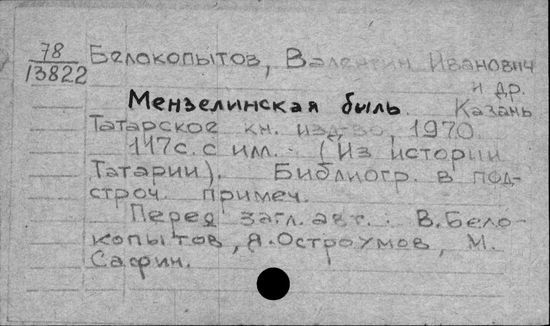 78
13822
Белокопытов, Валентин Иванович
и др.
Мензелинская быль. Казань
Татарское кн. изд-во, 1970.
117с. с илл. - (Из истории
Татарии). Библиогр. в под-
строч. примеч.
Перед загл. авт.: В.Бело-
копытов, Я.Остроумов, М.
Сафин.